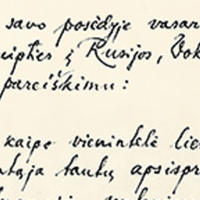 savo posėdyje vasar
į Rusijos, Vok
pareiškimu:
kaipo vienintelė lie
tautų apsispr